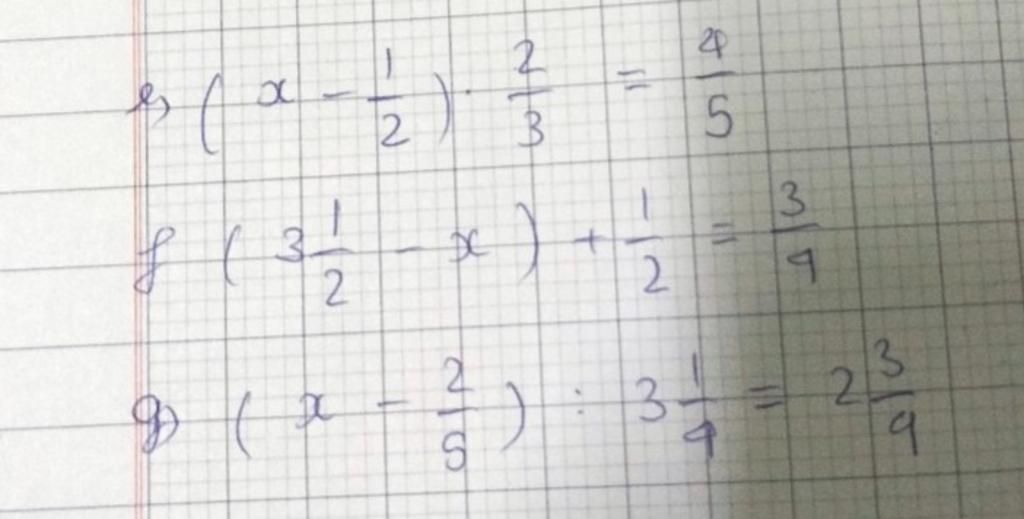 e) ( x - 1/2 ) · 2/3 = 4/5
f ( 3 1/2 - x ) + 1/2 = 3/4
g) ( x - 2/5 ) : 3 1/4 = 2 3/4